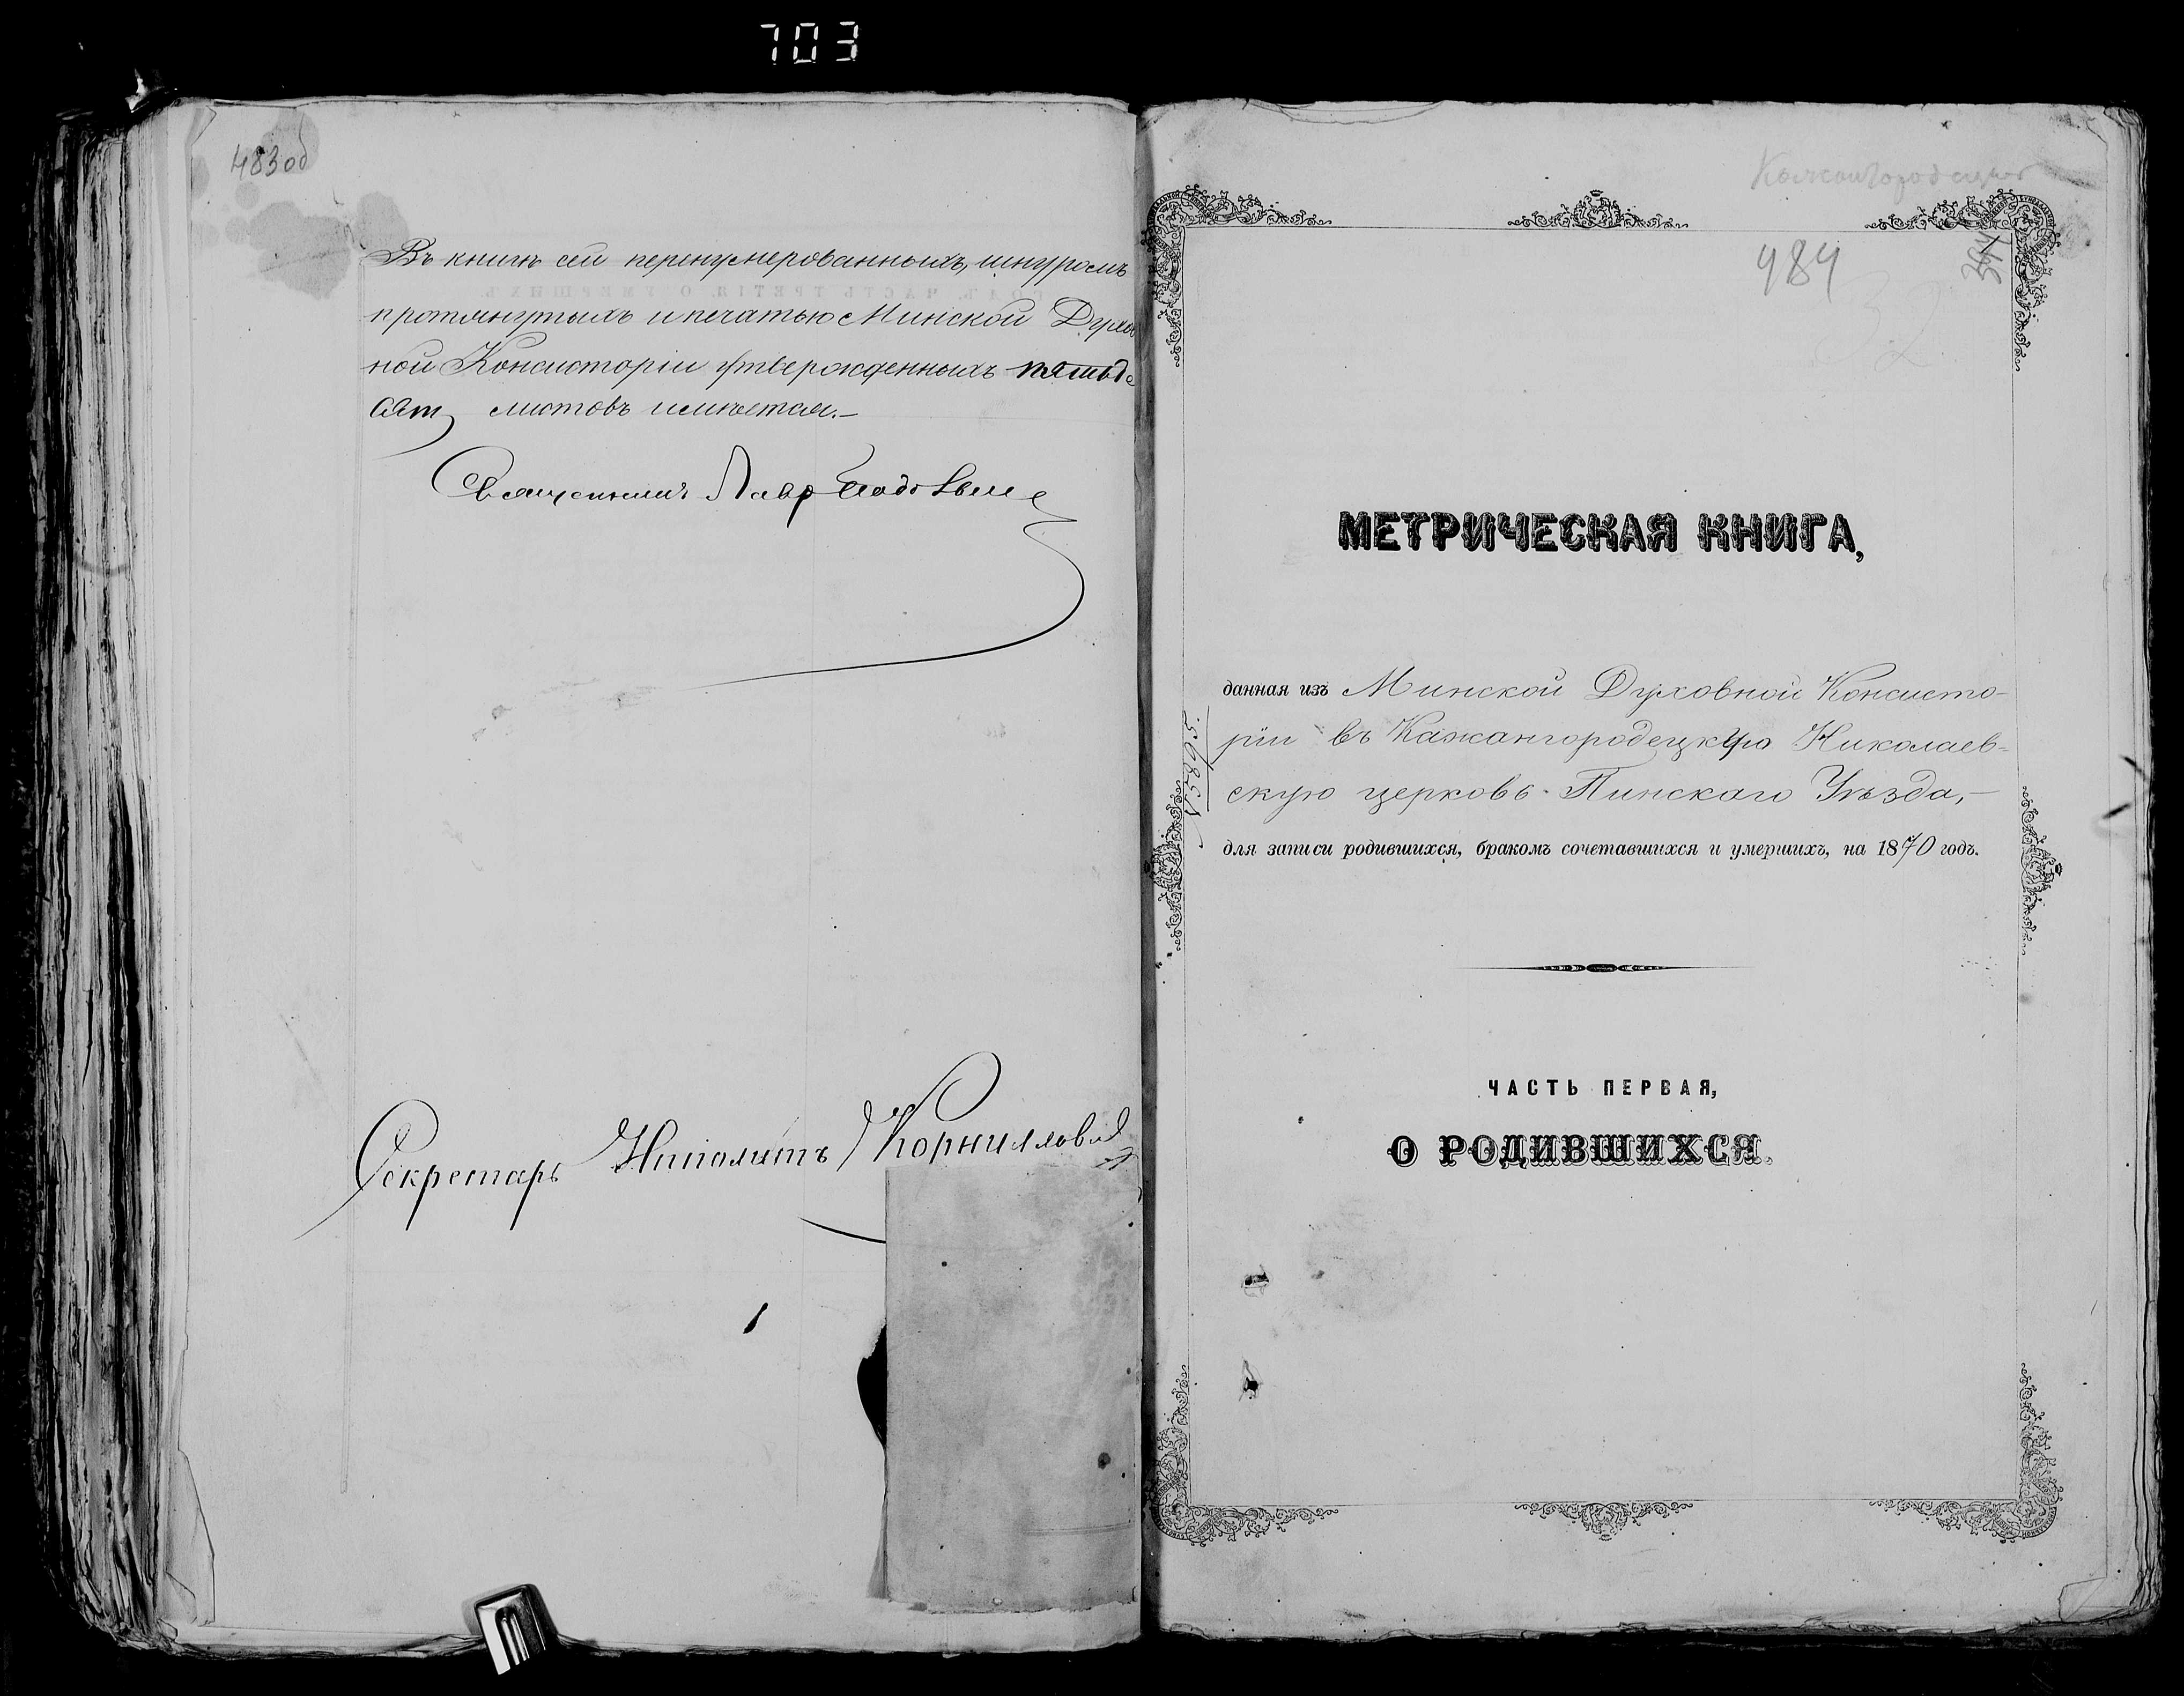 703
483об
Въ книгѣ сей перенумерованныхъ, шнуромъ
протянутыхъ и печатью Минской Духов
ной Консисторіи утвержденныхъ пятьде
сятъ листовъ имѣется.—
Священникъ Лавр
Секретарь Ипполитъ Корниллов
484
МЕТРИЧЕСКАЯ КНИГА,
данная изъ Минской Духовной Консисто-
ріи въ Кажангородецкую Николаев-
скую церковь Пинскаго Уѣзда,—
для записи родившихся, бракомъ сочетавшихся и умершихъ, на 1870 годъ.
ЧАСТЬ ПЕРВАЯ,
О РОДИВШИХСЯ.